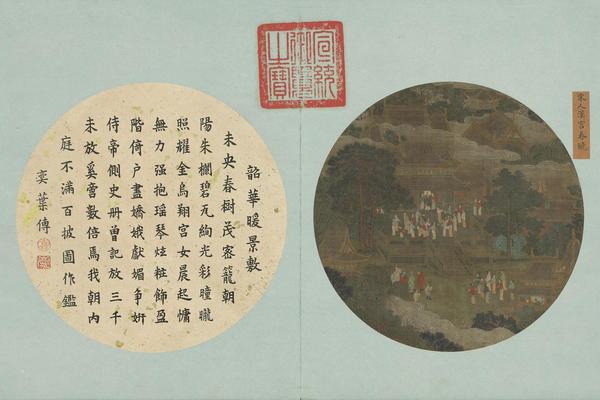 宋人漢宮春曉
宣統御覽之寶
韶華暖景敷
未央春樹茂密籠朝
陽朱欄碧瓦絢光彩曈曨
照耀金烏翔宮女晨起慵
無力强抱瑶琴炫粧飾盈
階倚户盡嬌娥獻媚爭妍
侍帝側史册曽記放三千
未放奚啻數倍焉我朝内
庭不滿百披圖作鑑
奕葉傳